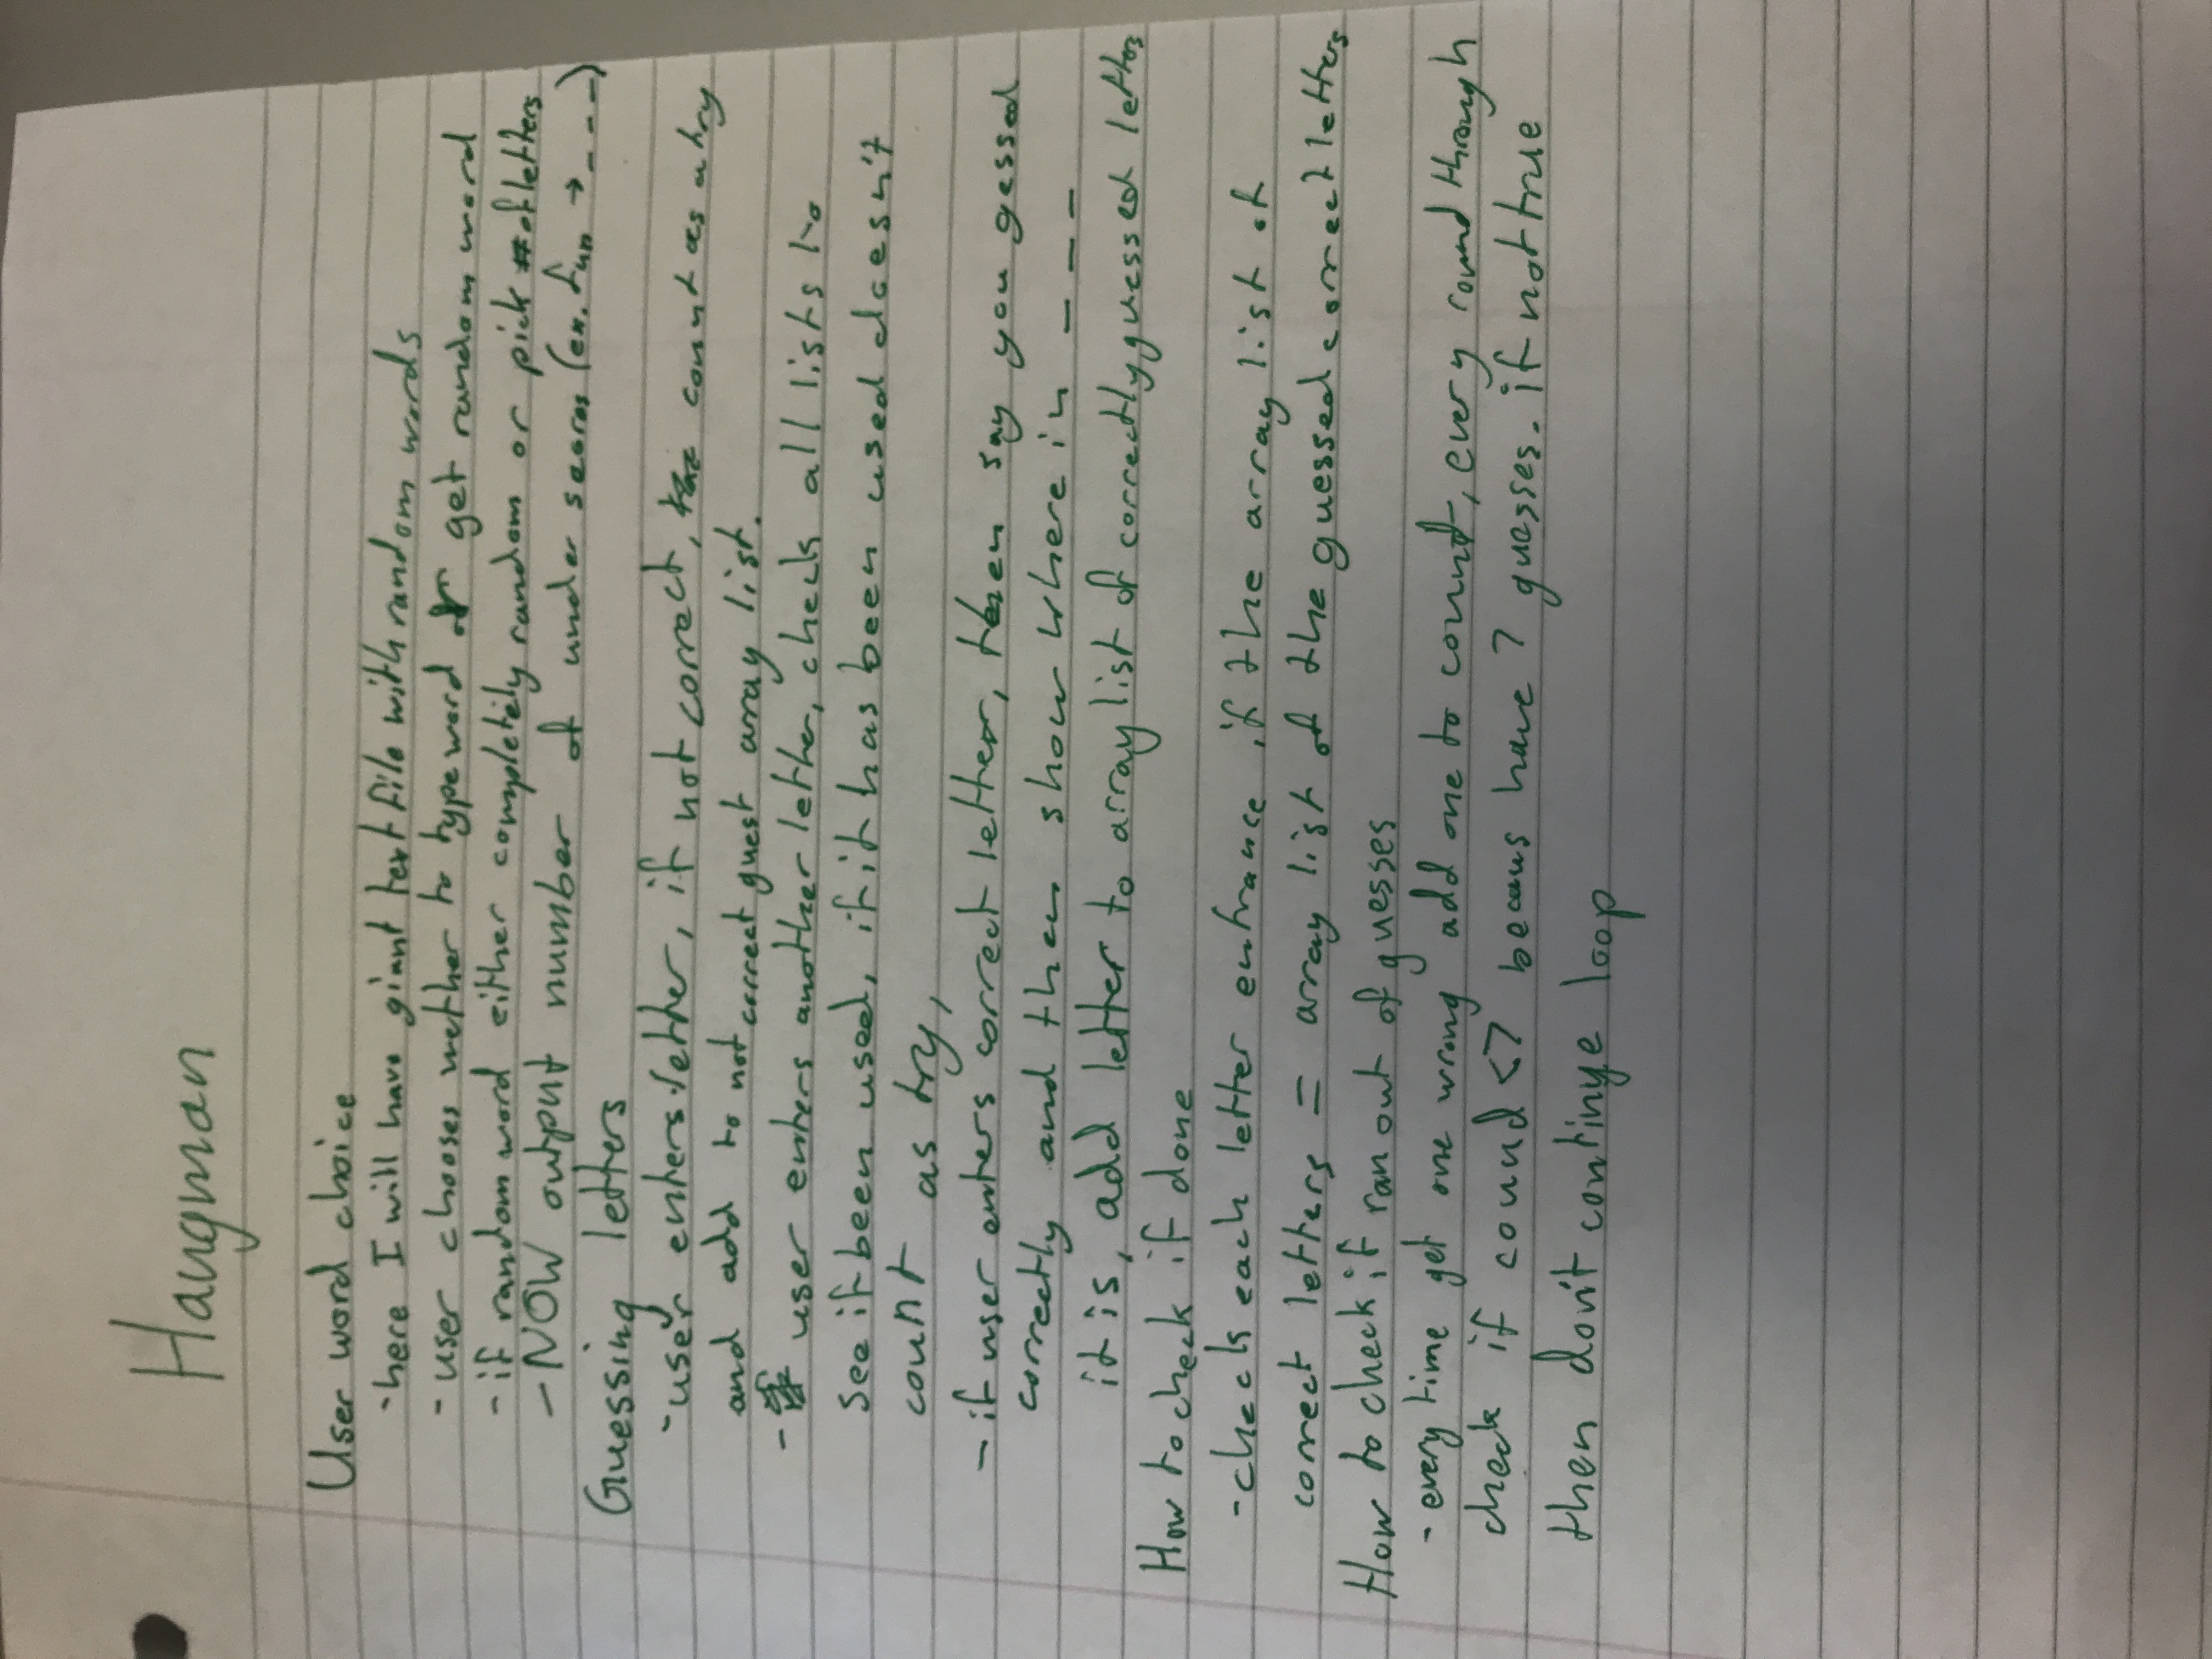 Hangman
User word choice
-here I will have giant text file with random words
- user chooses wether to type word or get random word
- if random word either completely random or pick # of letters
- NOW output number of under scores (ex. fun → _ _ _)
Guessing letters
-user enters letter, if not correct, count as a try
and add to not correct guest array list.
- user enters another letter, check all lists to
see if been used, if it has been used doesn't
count as try,
- if user enters correct letter, then say you gessed
correctly and then show where in _ _ _
it is, add letter to array list of correctly guessed letters
How to check if done
-check each letter entrance if the array list of
correct letters = array list of the guessed correct letters
How to check if ran out of guesses
- every time get one wrong add one to count, every round through
check if cound <7 becaus have 7 guesses. if not true
then don't continye loop